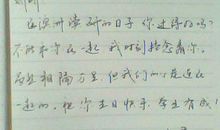 在深圳读研的日子你过得好吗？
不能和你在一起 我时刻挂念着你。
虽然相隔万里，但我们的心是连在
一起的，祝你生日快乐，学业有成！